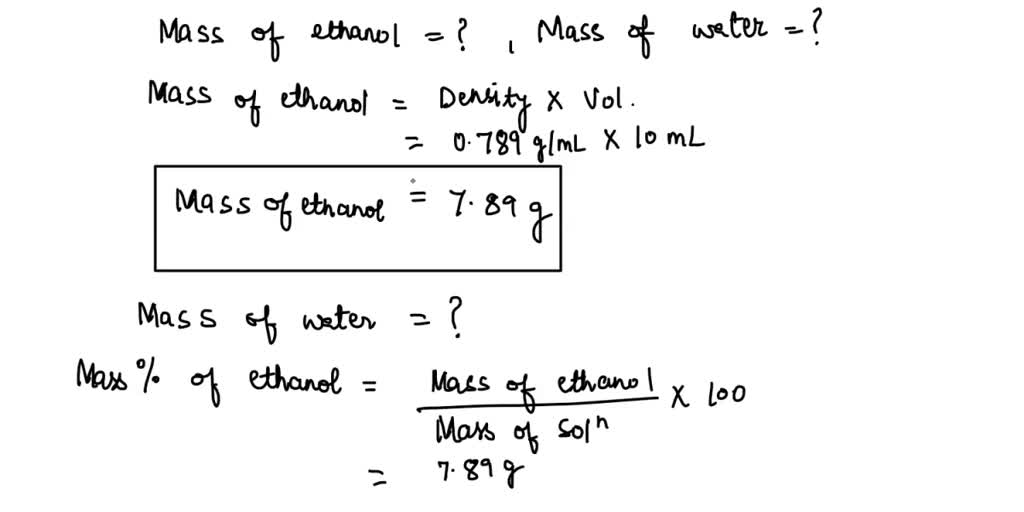 Mass of ethanol = ? , Mass of water = ?
Mass of ethanol = Density x Vol.
= 0.789 g/mL x 10 mL
Mass of ethanol = 7.89 g
Mass of water = ?
Mass % of ethanol = Mass of ethanol / Mass of solⁿ x 100
= 7.89 g